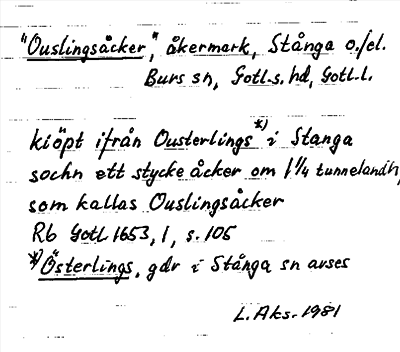 "Ouslingsåcker," åkermark, Stånga o./el.
Burs sn, Gotl.s. hd, Gotl. l.
kiöpt ifrån Ousterlings *) i Stanga
sochn ett stycke åcker om 1 1/4 tunnelandh,
som kallas Ouslingsåcker
Rb Gotl 1653, 1, s. 105
*) Österlings, gdr i Stånga sn avses
L. Aks. 1981